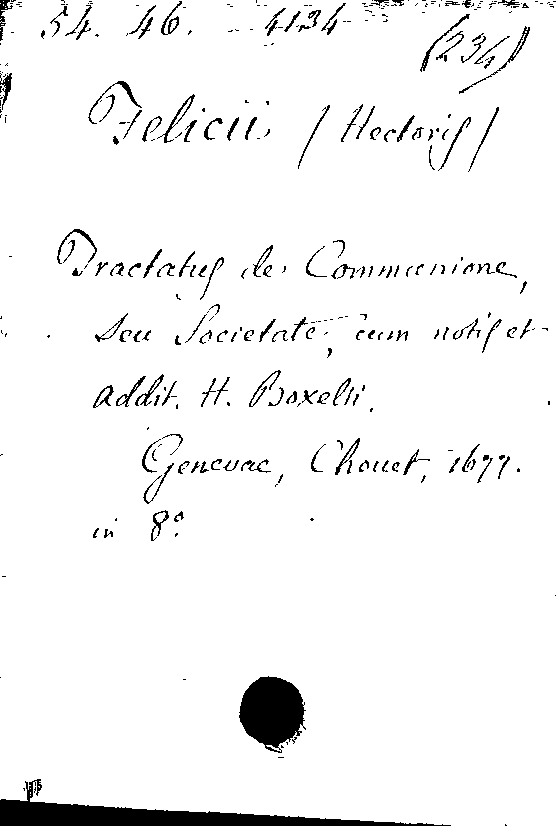 54. 46. - 4134
(234)
Felicii (Hectoris)
Tractatus de Communione,
seu Societate, cum notis et
addit. H. Boxelii.
Genevae, Chouet, 1677.
in 8º